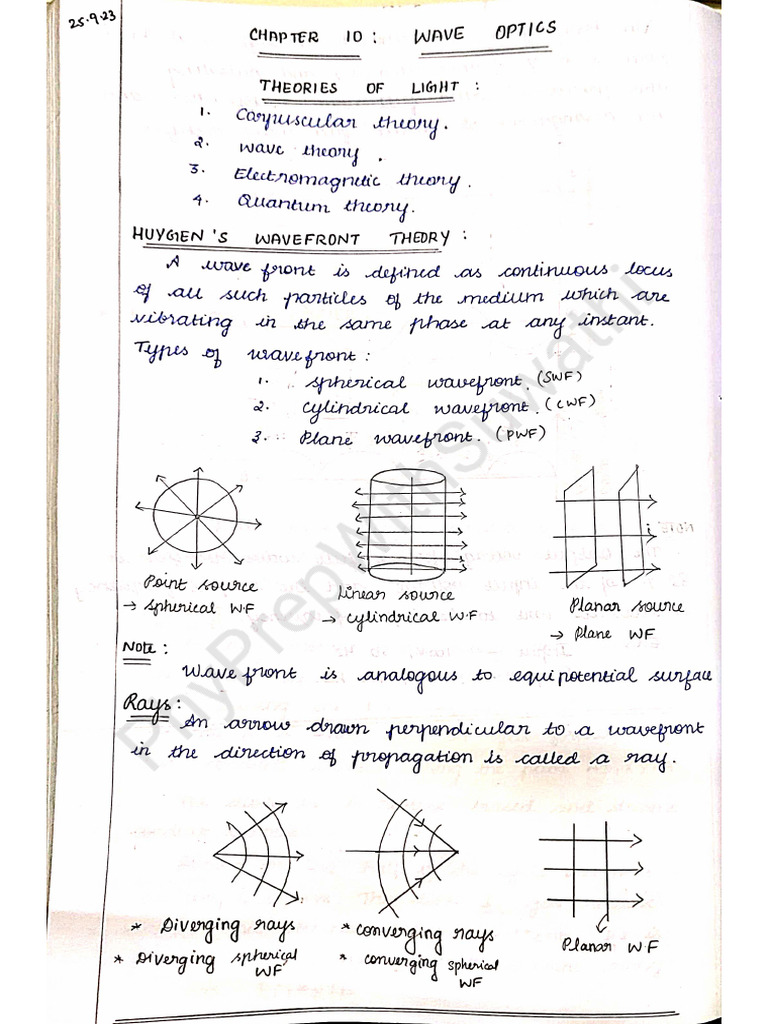 25.9.23
CHAPTER 10: WAVE OPTICS
THEORIES OF LIGHT:
1. Corpuscular theory.
2. Wave theory.
3. Electromagnetic theory.
4. Quantum theory.
HUYGEN'S WAVEFRONT THEORY:
A wave front is defined as continuous locus
of all such particles of the medium which are
vibrating in the same phase at any instant.
Types of wavefront:
1. Spherical wavefront. (SWF)
2. Cylindrical wavefront. (CWF)
3. Plane wavefront. (PWF)
Point source
→ Spherical W.F
Linear source
→ cylindrical W.F
Planar source
→ Plane WF
Note:
Wave front is analogous to equipotential surface
Rays:
An arrow drawn perpendicular to a wavefront
in the direction of propagation is called a ray.
* Diverging rays
* Diverging spherical
WF
* converging rays
* converging spherical
WF
Planar W.F
PhyPrepWithSuwathi